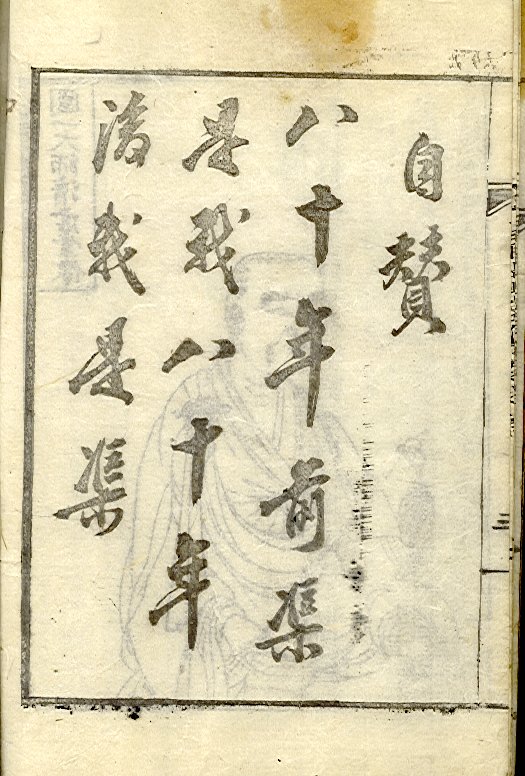 自賛
八十年前渠
是我八十年
後我是渠